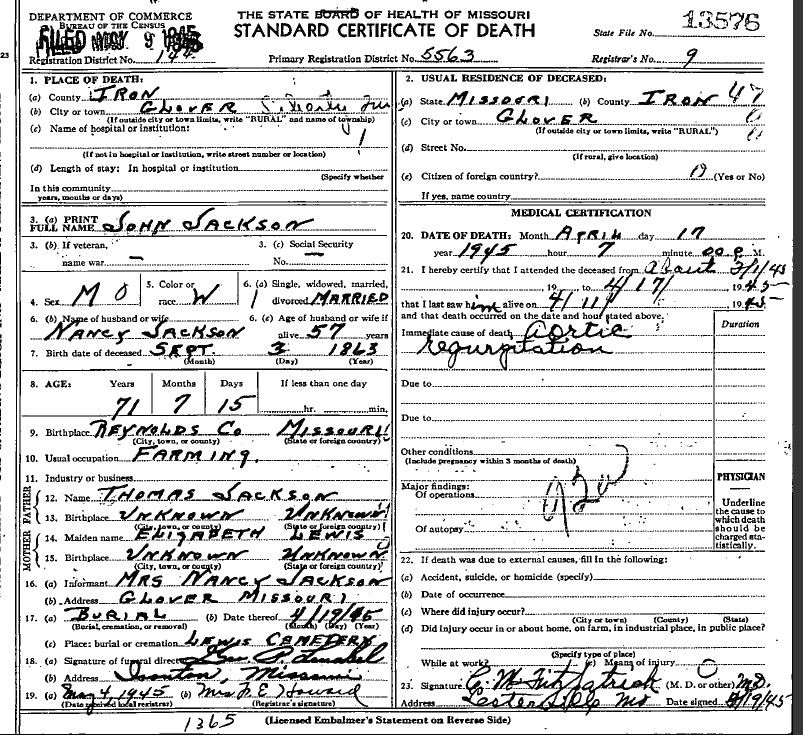 23
DEPARTMENT OF COMMERCE
BUREAU OF THE CENSUS
FILED MAY 9 1945
Registration District No. 144
THE STATE BOARD OF HEALTH OF MISSOURI
STANDARD CERTIFICATE OF DEATH
Primary Registration District No. 5563
State File No. 13576
Registrar's No. 9
1. PLACE OF DEATH:
(a) County IRON
(b) City or town GLOVER
(If outside city or town limits, write "RURAL" and name of township)
(c) Name of hospital or institution:
1
(If not in hospital or institution, write street number or location)
(d) Length of stay: In hospital or institution
(Specify whether
In this community
years, months or days)
2. USUAL RESIDENCE OF DECEASED:
(a) State MISSOURI (b) County IRON 47
(c) City or town GLOVER
(If outside city or town limits, write "RURAL")
(d) Street No.
(If rural, give location)
(e) Citizen of foreign country? (Yes or No)
If yes, name country
3. (a) PRINT FULL NAME JOHN JACKSON
3. (b) If veteran, name war — 3. (c) Social Security No. —
4. Sex M O 5. Color or race W 6. (a) Single, widowed, married, divorced MARRIED
6. (b) Name of husband or wife NANCY JACKSON 6. (c) Age of husband or wife if alive 57 years
7. Birth date of deceased SEPT. 3 1863
(Month) (Day) (Year)
8. AGE: Years Months Days If less than one day
71 7 15 hr. min.
9. Birthplace REYNOLDS CO MISSOURI
(City, town, or county) (State or foreign country)
10. Usual occupation FARMING.
11. Industry or business
FATHER
12. Name THOMAS JACKSON
13. Birthplace UNKNOWN UNKNOWN
(City, town, or county) (State or foreign country)
MOTHER
14. Maiden name ELIZABETH LEWIS
15. Birthplace UNKNOWN UNKNOWN
(City, town, or county) (State or foreign country)
16. (a) Informant MRS NANCY JACKSON
(b) Address GLOVER MISSOURI
17. (a) BURIAL (b) Date thereof 4/19/45
(Burial, cremation, or removal) (Month) (Day) (Year)
(c) Place: burial or cremation LEWIS CEMETERY
18. (a) Signature of funeral director
(b) Address Ironton, Missouri
19. (a) May 4, 1945 (b) Mrs. P. E. Howard
(Date received local registrar) (Registrar's signature)
MEDICAL CERTIFICATION
20. DATE OF DEATH: Month APRIL day 17
year 1945 hour 7 minute 00 P. M.
21. I hereby certify that I attended the deceased from About 3/1/45
19 to 4/17/ 1945
that I last saw him alive on 4/11/ 1945
and that death occurred on the date and hour stated above.
Duration
Immediate cause of death Aortic
regurgitation
Due to
Due to
Other conditions
(Include pregnancy within 3 months of death)
Major findings:
Of operations
Of autopsy
PHYSICIAN
Underline
the cause to
which death
should be
charged sta-
tistically.
22. If death was due to external causes, fill in the following:
(a) Accident, suicide, or homicide (specify)
(b) Date of occurrence
(c) Where did injury occur?
(City or town) (County) (State)
(d) Did injury occur in or about home, on farm, in industrial place, in public place?
(Specify type of place)
While at work? (e) Means of injury
23. Signature C. W. Fitzpatrick (M. D. or other) M.D.
Address Lesterville Mo Date signed 4/19/45
1365
(Licensed Embalmer's Statement on Reverse Side)